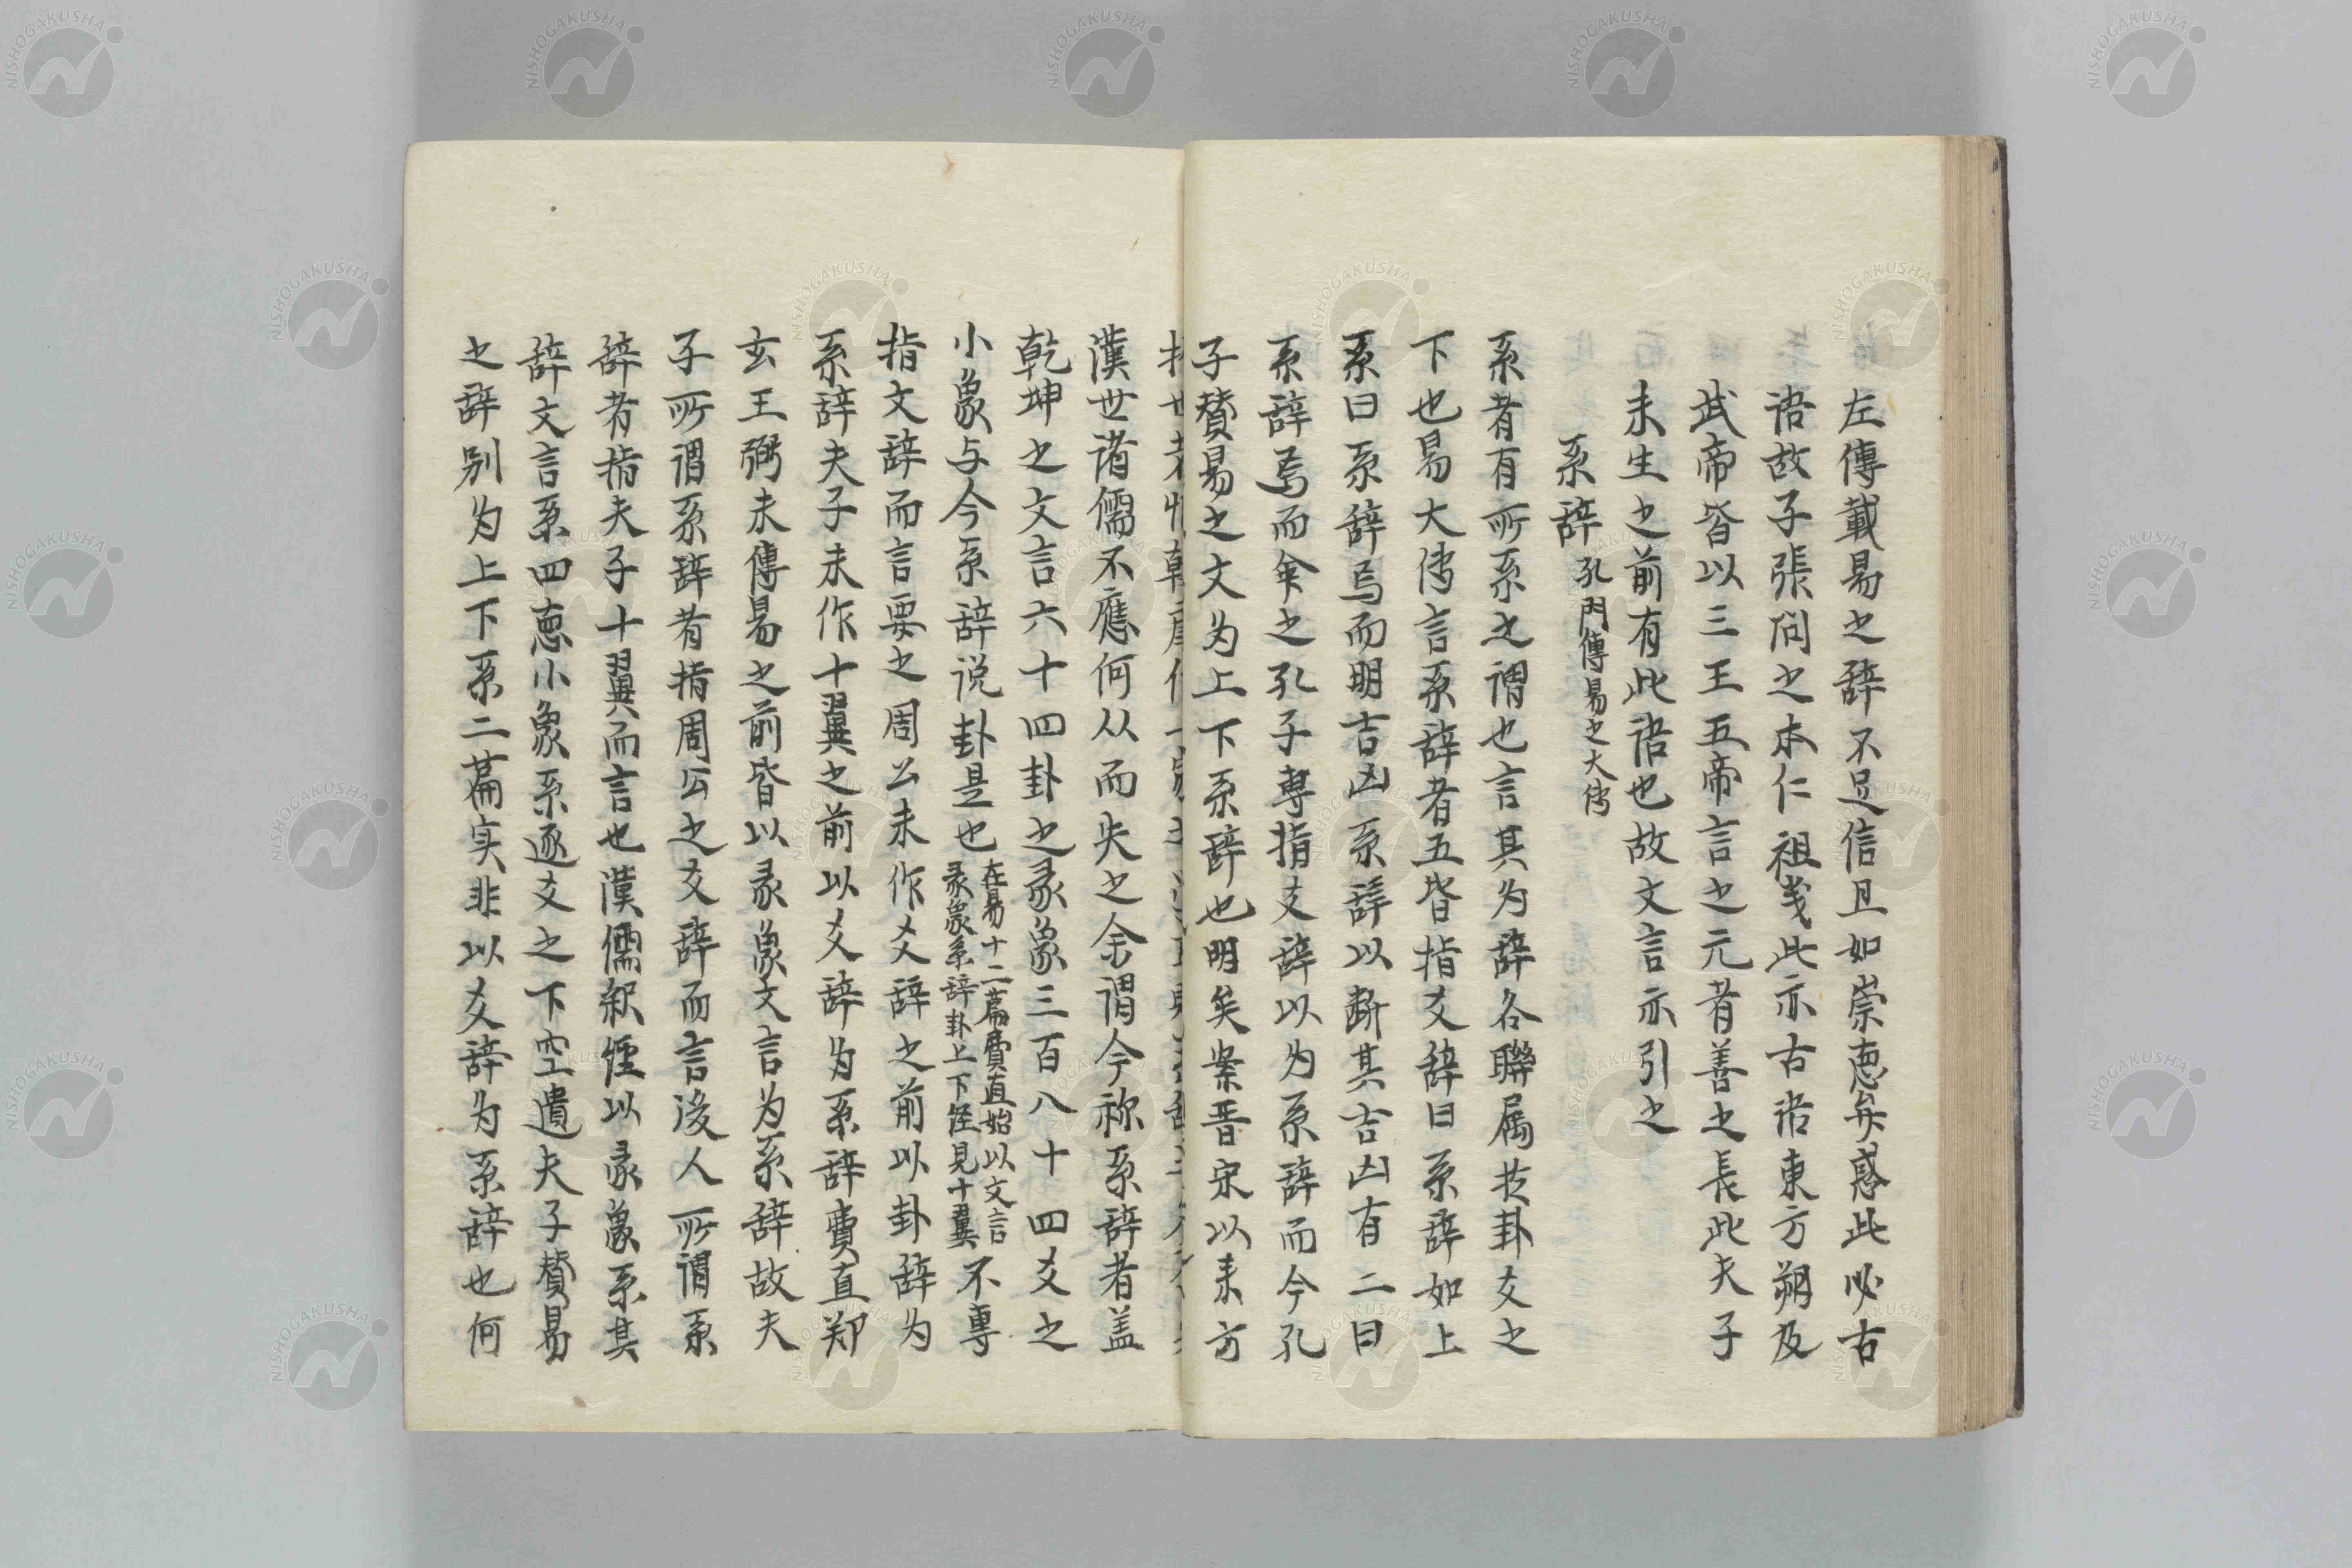 左傳載易之辞不足信且如崇悳弁惑此必古
语故子張问之本仁祖义此亦古语東方朔及
武帝皆以三王五帝言之元者善之長此夫子
未生之前有此语也故文言亦引之
系辞 孔門傳易之大传
系者有所系之谓也言其为辞各聯属於卦爻之
下也易大传言系辞者五皆指爻辞曰系辞如上
系曰系辞焉而明吉凶系辞以断其吉凶有二曰
系辞焉而命之孔子專指爻辞以为系辞而今孔
子賛易之文为上下系辞也明矣案晋宋以来方
漢世诸儒不應何从而失之余谓今称系辞者盖
乾坤之文言六十四卦之彖象三百八十四爻之
小象与今系辞说卦是也 在易十二篇費直始以文言 彖象系辞卦上下经見十翼 不專
指文辞而言要之周公未作爻辞之前以卦辞为
系辞夫子未作十翼之前以爻辞为系辞費直郑
玄王弼未傳易之前皆以彖象文言为系辞故夫
子所谓系辞者指周公之爻辞而言後人所谓系
辞者指夫子十翼而言也漢儒釈经以彖象系其
辞文言系四悳小象系逐爻之下空遺夫子賛易
之辞别为上下系二篇实非以爻辞为系辞也何